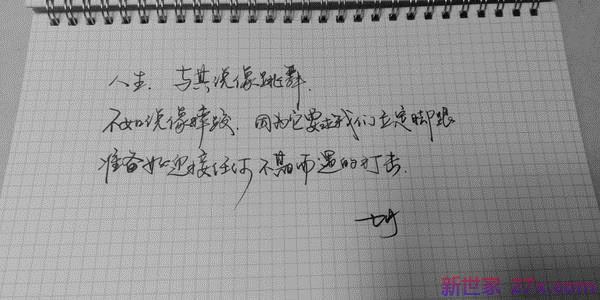 人生，与其说像跳舞，
不如说像摔跤，因为它要求我们立定脚跟
准备好迎接任何不期而遇的打击.
新世家 27x.com